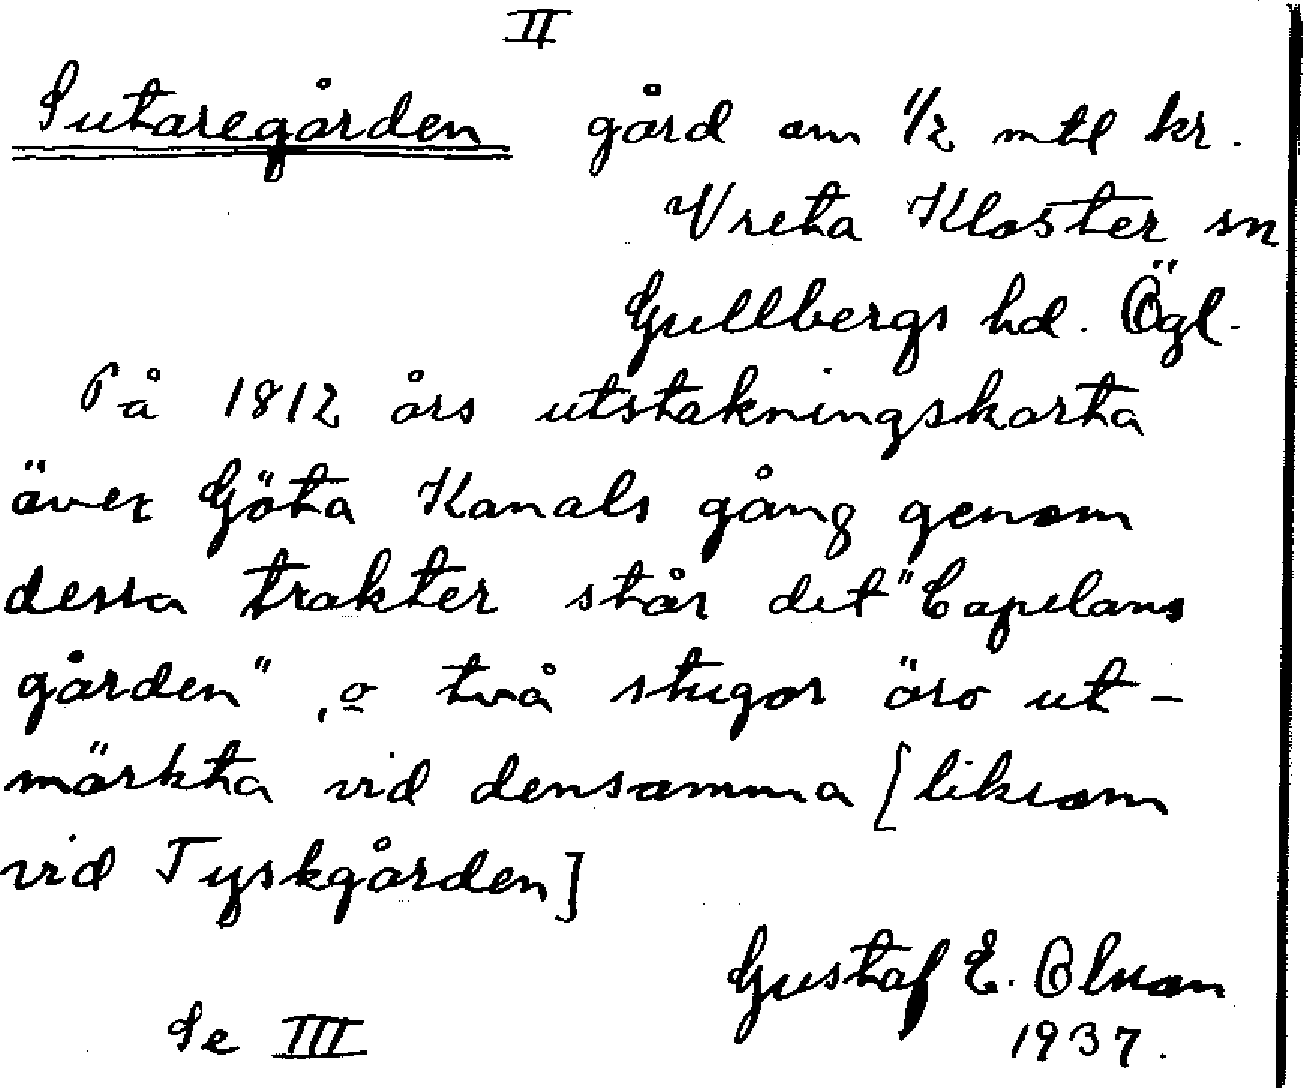 II
Sutaregården gård om 1/2 mtl kr.
Vreta Kloster sn
Gullbergs hd. Ögl.
På 1812 års utstakningskarta
över Göta Kanals gång genom
dessa trakter står det "Capelans
gården", o två stugor äro ut-
märkta vid densamma [liksom
vid Tyskgården]
Gustaf E. Olsson
Se III 1937.